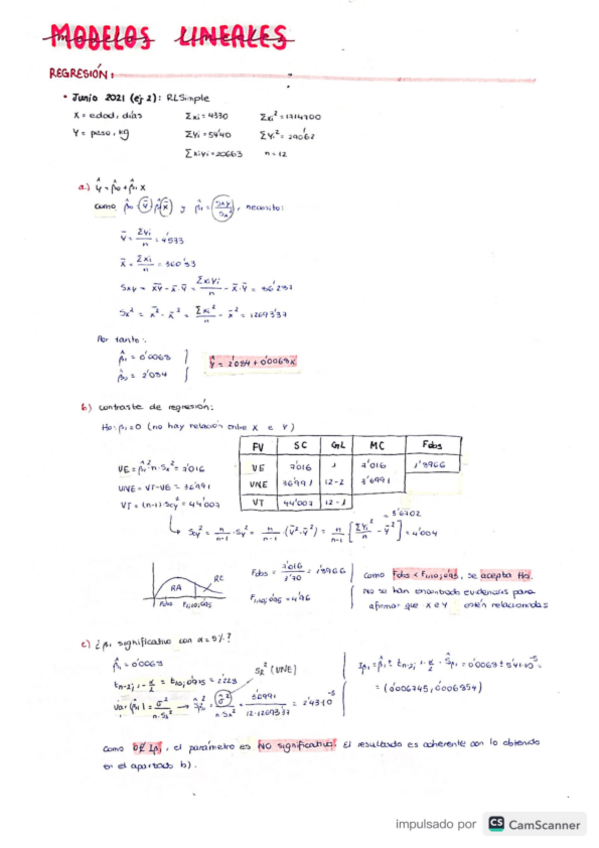 MODELOS LINEALES
REGRESIÓN:
• Junio 2021 (ej 2): RLSimple
X = edad, días Σxi = 4330 Σxi² = 1714700
Y = peso, kg Σyi = 54'40 ΣYi² = 290'62
Σxiyi = 20663 n = 12
a) Ŷ = β̂₀ + β̂₁ X
como β̂₀ = Ȳ - β̂₁ X̄ y β̂₁ = Sxy / Sx², necesito:
Ȳ = ΣYi / n = 4'533
X̄ = Σxi / n = 360'33
Sxy = X̄Ȳ - X̄·Ȳ = ΣxiYi / n - X̄·Ȳ = 86'237
Sx² = x̄² - x̄² = Σxi² / n - x̄² = 12693'37
Por tanto:
β̂₁ = 0'0068
β̂₀ = 2'084
Ŷ = 2'084 + 0'0068X
b) contraste de regresión:
H₀: β₁ = 0 (no hay relación entre X e Y)
FV SC GL MC Fobs
VE 7'016 1 7'016 1'8966
VNE 36'991 12-2 3'6991
VT 44'007 12-1
VE = β̂₁²·n·Sx² = 7'016
VNE = VT-VE = 36'991
VT = (n-1)·Scy² = 44'007
Scy² = n/n-1 · Sy² = n/n-1 · (Ȳ²-Ȳ²) = n/n-1 [ΣYi²/n - Ȳ²] = 4'004
= 3'6702
RA
RC
Fobs F1,10;0'95
Fobs = 7'016 / 3'70 = 1'8966
F1,10;0'95 = 4'96
como Fobs < F1,10;0'95, se acepta H₀.
No se han encontrado evidencias para
afirmar que X e Y estén relacionadas
c) ¿β₁ significativo con α = 5%?
β̂₁ = 0'0068
t n-2; 1-α/2 = t10; 0'975 = 2'228
SR² (VNE)
Var(β̂₁) = σ² / n·Sx² → Ŝ²β₁ = σ̂² / n·Sx² = 3'6991 / 12·12693'37 = 2'43·10⁻⁵
Iβ₁ = β̂₁ ± t n-2; 1-α/2 · Ŝβ₁ = 0'0068 ± 5'41·10⁻⁵
= (0'006745, 0'006854)
como 0 ∉ Iβ₁, el parámetro es NO significativo. El resultado es coherente con lo obtenido
en el apartado b).
impulsado por CS CamScanner